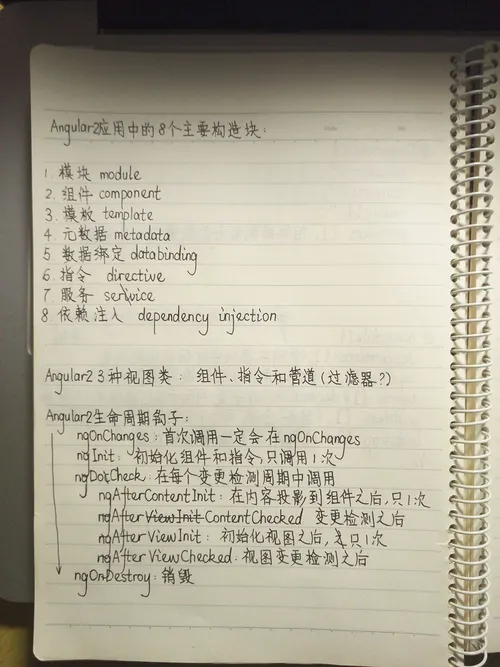 Angular2应用中的8个主要构造块:
1. 模块 module
2. 组件 component
3. 模板 template
4. 元数据 metadata
5 数据绑定 databinding
6. 指令 directive
7. 服务 service
8. 依赖注入 dependency injection
Angular2 3种视图类: 组件、指令和管道(过滤器?)
Angular2生命周期钩子:
ngOnChanges: 首次调用一定会在ngOnChanges
ngInit: 初始化组件和指令,只调用1次
ngDoCheck: 在每个变更检测周期中调用
ngAfterContentInit: 在内容投影到组件之后,只1次
ngAfter View Init ContentChecked 变更检测之后
ngAfter ViewInit: 初始化视图之后, 只1次
ngAfter ViewChecked: 视图变更检测之后
ngOnDestroy: 销毁